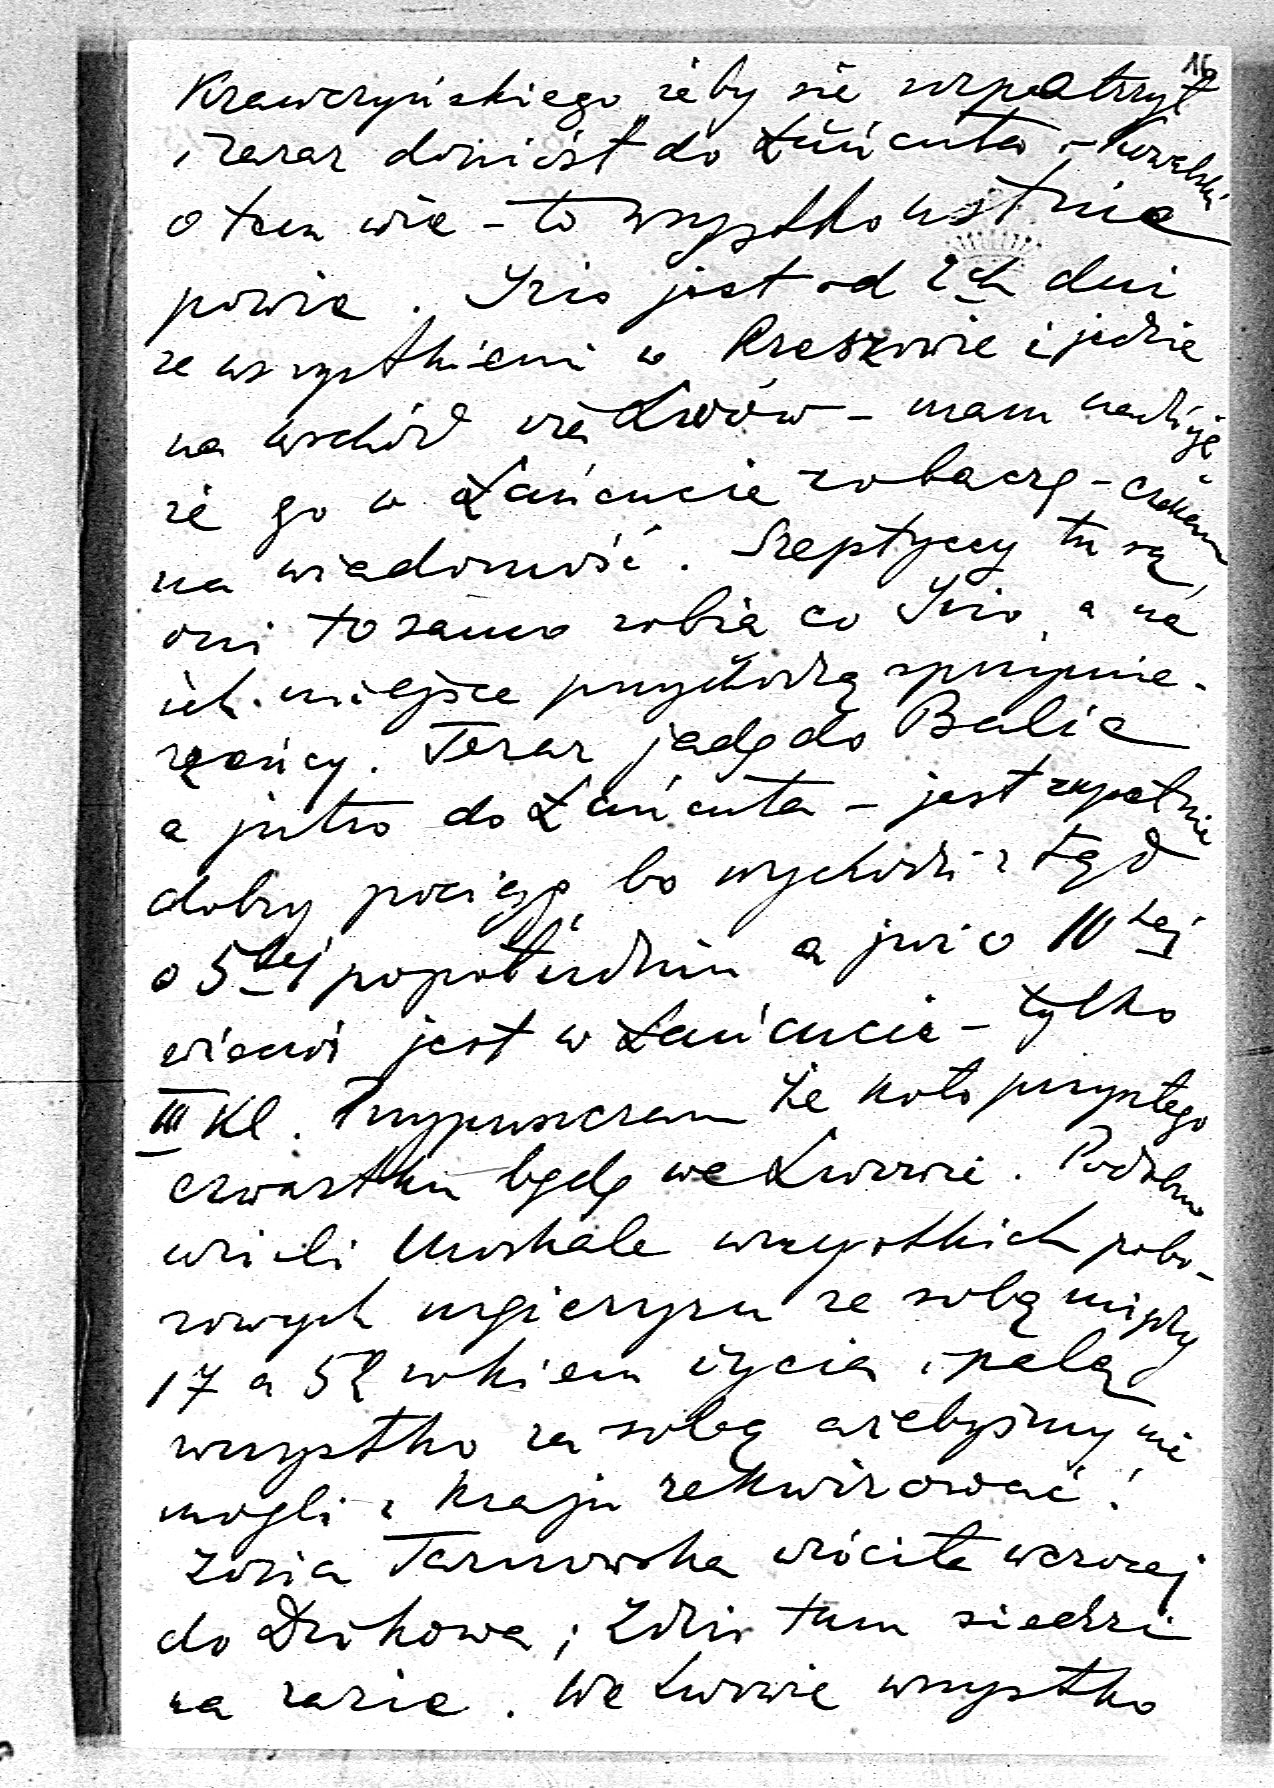 16
Krawczyńskiego żeby się rozpatrzył
i zaraz doniósł do Łańcuta – Kowalski
o tem wie – to wszystko ustnie
powie. Izio jest od 2ch dni
ze wszystkiemi w Rzeszowie i jedzie
na wschód via Lwów – mam nadzieję
że go w Łańcucie zobaczę – czekam
na wiadomość. Szeptyccy tu są,
oni to samo robią co Izio, a na
ich miejsce przychodzą sprzymie-
rzeńcy. Teraz jadę do Balic
a jutro do Łańcuta – jest zupełnie
dobry pociąg bo wychodzi z tąd
o 5tej popołudniu a już o 10tej
wieczór jest w Łańcucie – tylko
III Kl. Przypuszczam że koło przyszłego
czwartku będę we Lwowie. Podobno
wzieli Moskale wszystkich pobo-
rowych mężczyzn ze sobą między
17 a 52 rokiem życia i palą
wszystko za sobą ażebyśmy nie
mogli z kraju rekwirować!
Zosia Tarnowska wróciła wczoraj
do Dzikowa; Zdziś tam siedzi
na razie. We Lwowie wszystko